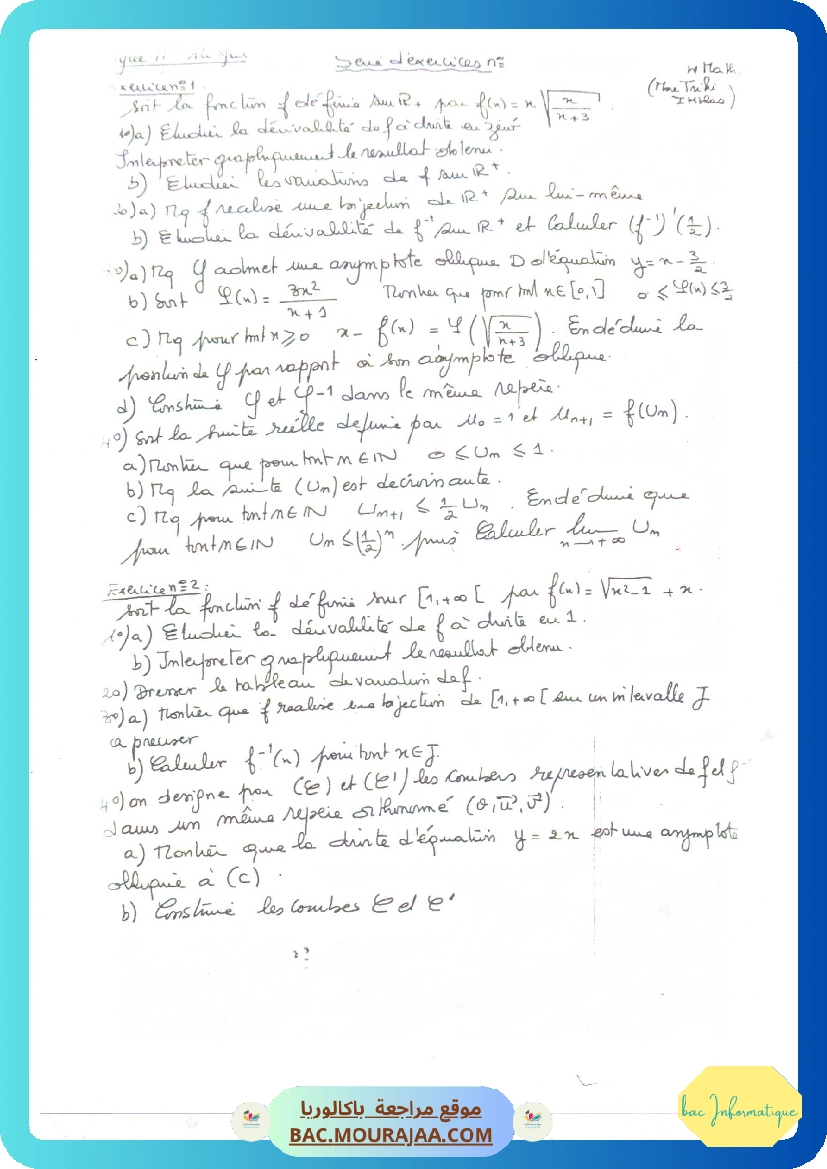 Série d'exercices n=
4 Math.
Exercice n°1
(Mme Triki
Ikhlas)
Soit la fonction f définie sur IR+ par f(x) = x √(x/(x+3)) .
1°)a) Etudier la dérivabilité de f à droite en zéro
Interpreter graphiquement le resultat obtenu.
b) Etudier les variations de f sur IR+.
2°)a) Mq f realise une bijection de IR+ sur lui-même
b) Etudier la dérivabilité de f⁻¹ sur IR+ et Calculer (f⁻¹)'(1/2).
3°)a) Mq φ admet une asymptote oblique D d'équation y = x - 3/2.
b) Soit φ(x) = 3x²/(x+1) Montrer que pour tout x ∈ [0,1] 0 ≤ φ(x) ≤ 3/2
c) Mq pour tout x ≥ 0 x - f(x) = φ(√(x/(x+3))) . En déduire la
position de φ par rapport à son asymptote oblique.
d) Construire φ et φ-1 dans le même repère.
4°) Soit la suite réelle definie par U₀ = 1 et Un+1 = f(Un).
a) Montrer que pour tout n ∈ IN 0 ≤ Un ≤ 1.
b) Mq la suite (Un) est decroissante.
c) Mq pour tout n ∈ IN Un+1 ≤ 1/2 Un . En déduire que
pour tout n ∈ IN Un ≤ (1/2)ⁿ. puis Calculer lim n→+∞ Un
Exercice n=2:
soit la fonction f définie sur [1,+∞[ par f(x) = √(x²-1) + x.
1°)a) Etudier la dérivabilité de f à droite en 1.
b) Interpreter graphiquement le resultat obtenu.
2°) Dresser le tableau de variation de f.
3°)a) Montrer que f realise une bijection de [1,+∞[ sur un intervalle J
a preciser
b) Calculer f⁻¹(x) pour tout x ∈ J.
4°) on designe par (C) et (C') les courbes representatives de f et f⁻¹
dans un même repère orthonormé (O, u, v).
a) Montrer que la droite d'équation y = 2x est une asymptote
oblique à (C) .
b) Construire les courbes C et C'
موقع مراجعة باكالوريا
BAC.MOURAJAA.COM
bac Informatique